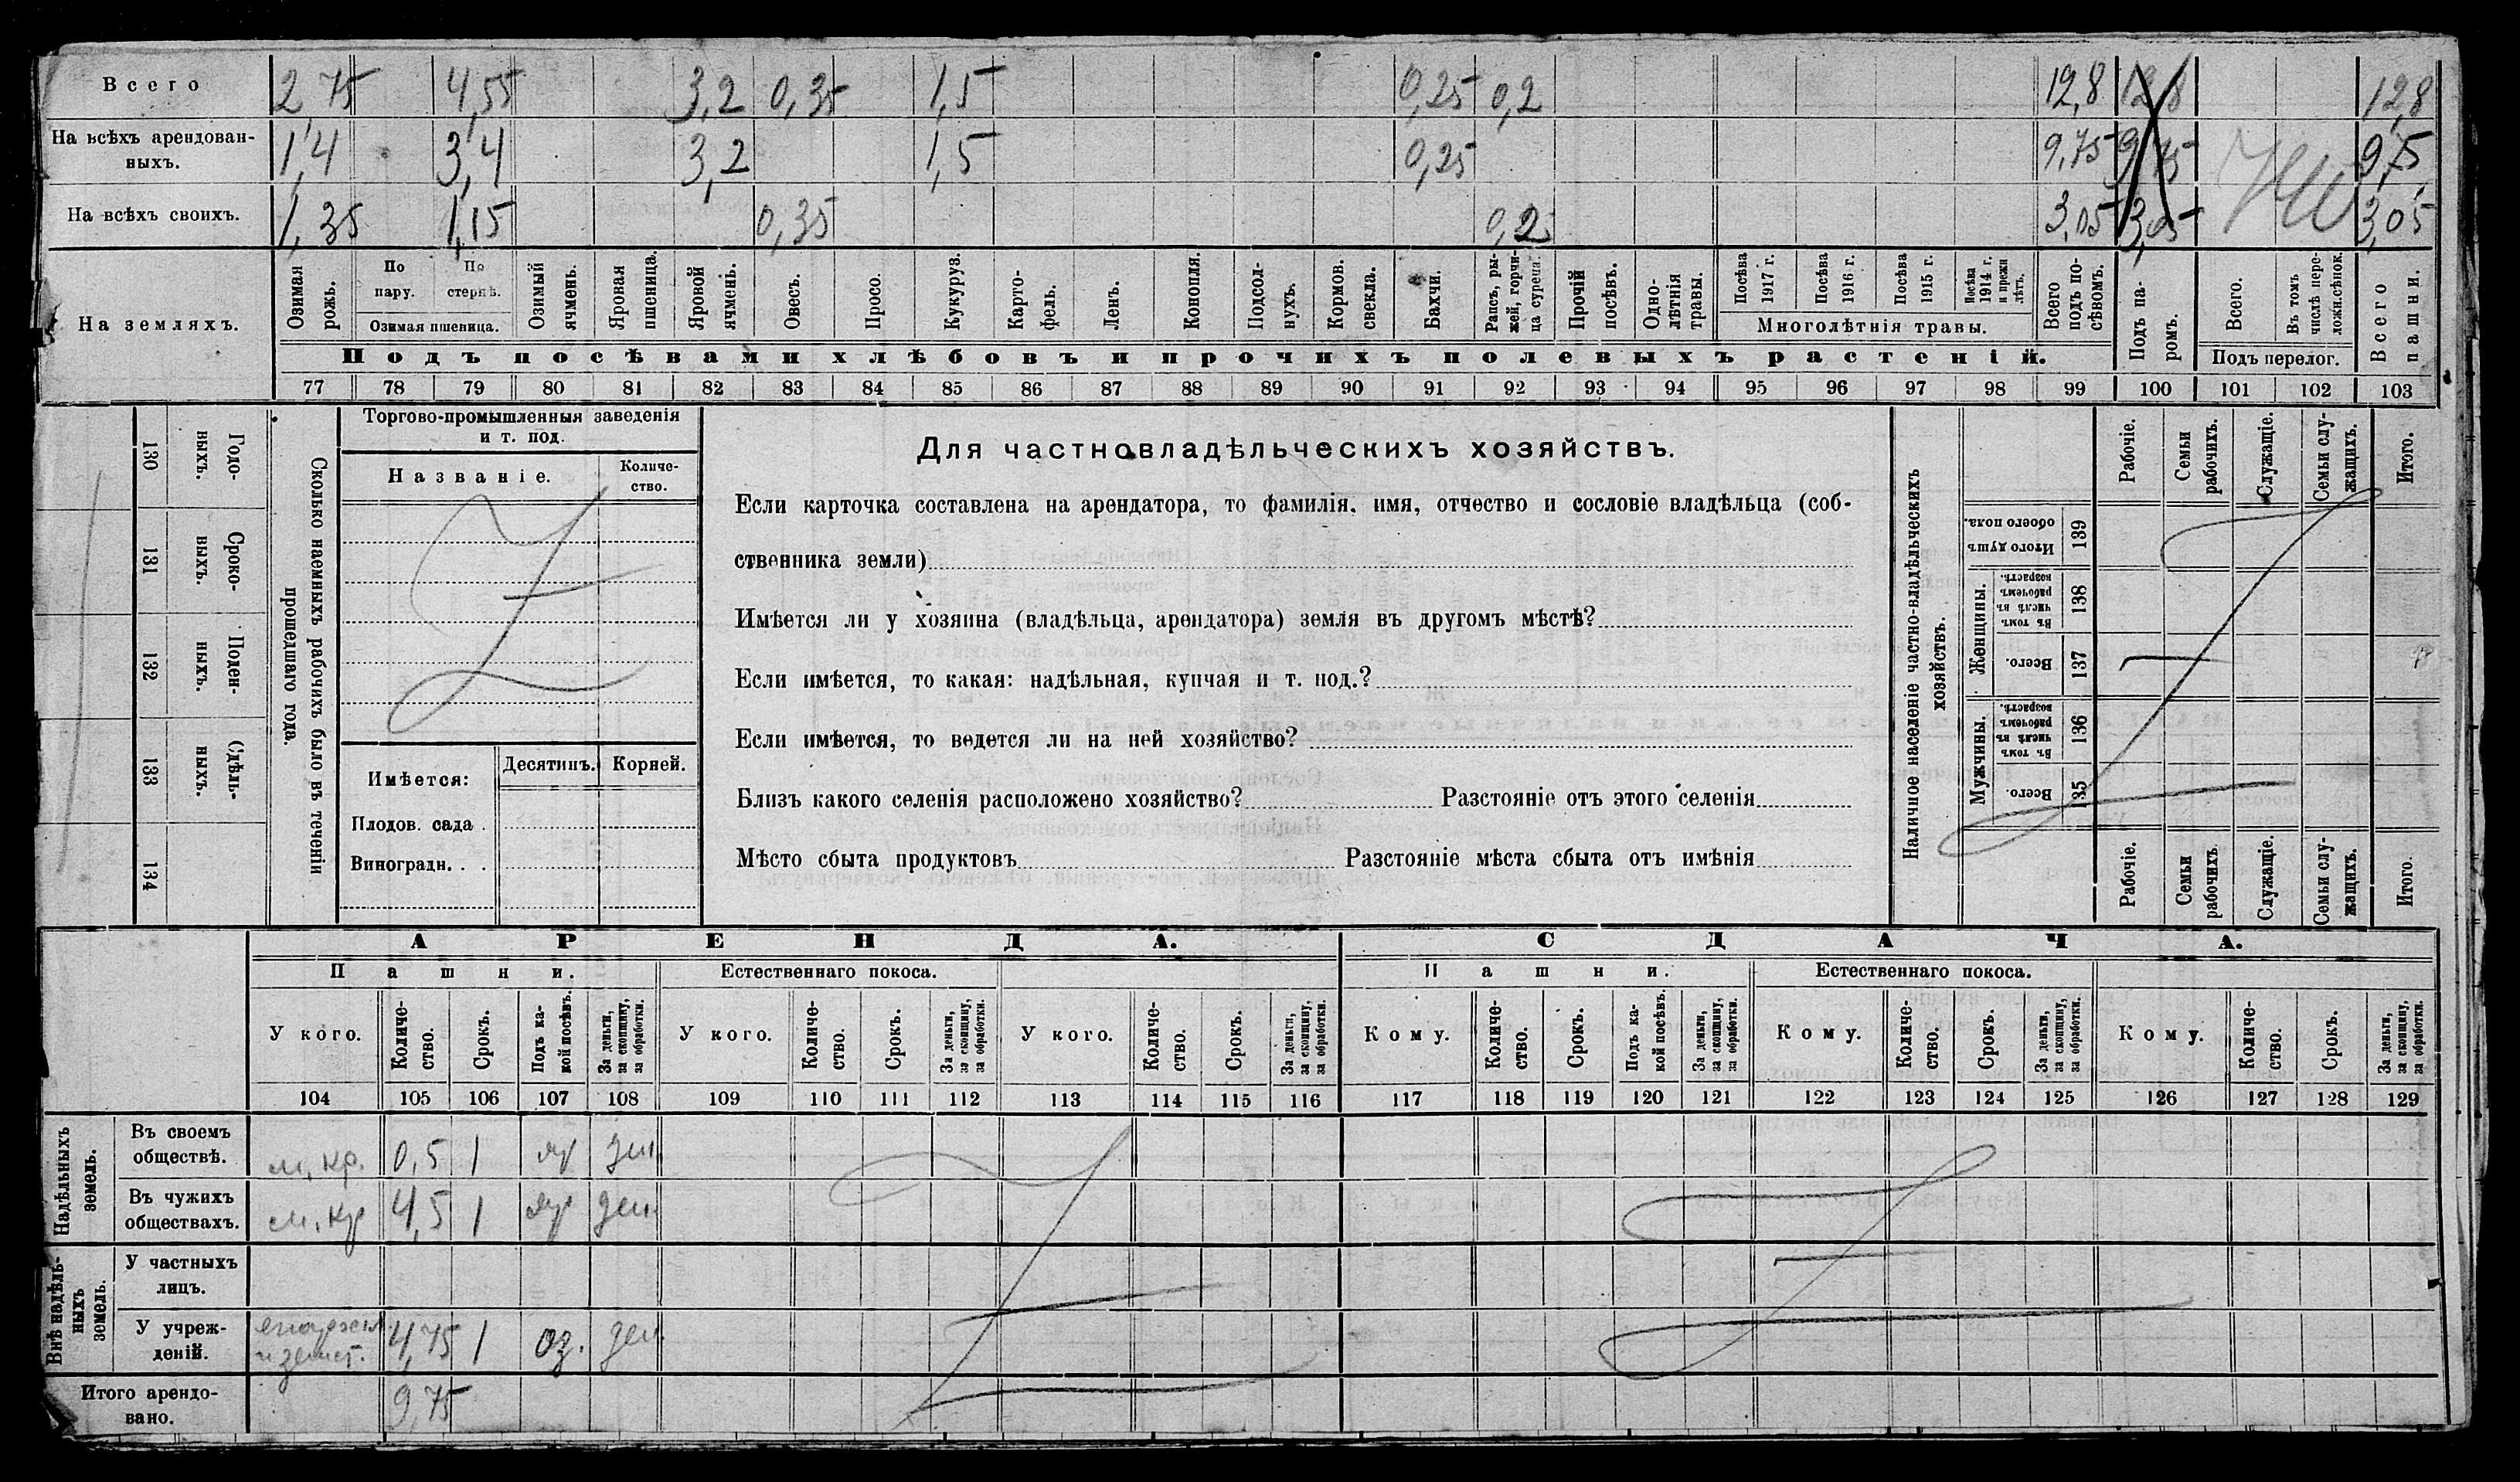 Всего 2,75 4,55 3,2 0,35 1,5 0,25 0,2 12,8 12,8 12,8
На всѣхъ арендован-
ныхъ. 1,4 3,4 3,2 1,5 0,25 9,75 9,75 9,75
На всѣхъ своихъ. 1,35 1,15 0,35 0,2 3,05 3,05 3,05
На земляхъ.
Озимая рожь.
По пару.
По стернѣ.
Озимая пшеница.
Озимый ячмень.
Яровая пшеница.
Яровой ячмень.
Овесъ.
Просо.
Кукуруз.
Карто-
фель.
Ленъ.
Конопля.
Подсол-
нухъ.
Кормов. свекла.
Бахчи.
Рапсъ, ры-
жей, горчи-
ца сурепа.
Прочій посѣвъ.
Одно-
лѣтнія травы.
Посѣва 1917 г.
Посѣва 1916 г.
Посѣва 1915 г.
Посѣва 1914 г. и прежн лѣтъ.
Многолѣтнія травы.
Всего подъ по-
сѣвомъ.
Подъ па-
ромъ.
Всего.
Въ томъ числѣ пере-
ложн.сѣнок.
Подъ перелог.
Всего пашни.
Подъ посѣвами хлѣбовъ и прочихъ полевыхъ растеній.
77 78 79 80 81 82 83 84 85 86 87 88 89 90 91 92 93 94 95 96 97 98 99 100 101 102 103
130 Годо-
выхъ.
131 Сроко-
выхъ.
132 Поден-
ныхъ.
133 Сдѣль-
ныхъ.
134
Сколько наемныхъ рабочихъ было въ теченіи
прошедшаго года.
Торгово-промышленныя заведенія
и т. под.
Названіе.
Количе-
ство.
Имѣется:
Десятинъ. Корней.
Плодов. сада .
Виноградн. . .
Для частновладѣльческихъ хозяйствъ.
Если карточка составлена на арендатора, то фамилія, имя, отчество и сословіе владѣльца (соб-
ственника земли)
Имѣется ли у хозяина (владѣльца, арендатора) земля въ другомъ мѣстѣ?
Если имѣется, то какая: надѣльная, купчая и т. под.?
Если имѣется, то ведется ли на ней хозяйство?
Близъ какого селенія расположено хозяйство? Разстояніе отъ этого селенія
Мѣсто сбыта продуктовъ Разстояніе мѣста сбыта отъ имѣнія
Наличное населеніе частно-владѣльческихъ
хозяйствъ.
Рабочіе.
Семьи рабочихъ.
Служащіе.
Семьи слу-
жащихъ.
Итого.
Итого душъ обоего пола. 139
Женщины.
Въ томъ числѣ въ рабочемъ возрастѣ. 138
Всего. 137
Мужчины.
Въ томъ числѣ въ рабочемъ возрастѣ. 136
Всего. 135
Рабочіе.
Семьи рабочихъ.
Служащіе.
Семьи слу-
жащихъ.
Итого.
АРЕНДА. СДАЧА.
Пашни. Естественнаго покоса. Пашни. Естественнаго покоса.
У кого.
Количе-
ство.
Срокъ.
Подъ ка-
кой посѣвъ.
За деньги,
за скопщину,
за обработки.
У кого.
Количе-
ство.
Срокъ.
За деньги,
за скопщину,
за обработки.
У кого.
Количе-
ство.
Срокъ.
За деньги,
за скопщину,
за обработки.
Кому.
Количе-
ство.
Срокъ.
Подъ ка-
кой посѣвъ.
За деньги,
за скопщину,
за обработки.
Кому.
Количе-
ство.
Срокъ.
За деньги,
за скопщину,
за обработки.
Кому.
Количе-
ство.
Срокъ.
За деньги,
за скопщину,
за обработки.
104 105 106 107 108 109 110 111 112 113 114 115 116 117 118 119 120 121 122 123 124 125 126 127 128 129
Надѣльныхъ
земель.
Въ своемъ
обществѣ. м. кр. 0,5 1 яр ден
Въ чужихъ
обществахъ. м. кр 4,5 1 яр ден.
Внѣ надѣль-
ныхъ
земель.
У частныхъ
лицъ.
У учреж-
деній. и земст. 4,75 1 оз. ден
Итого арендо-
вано. 9,75